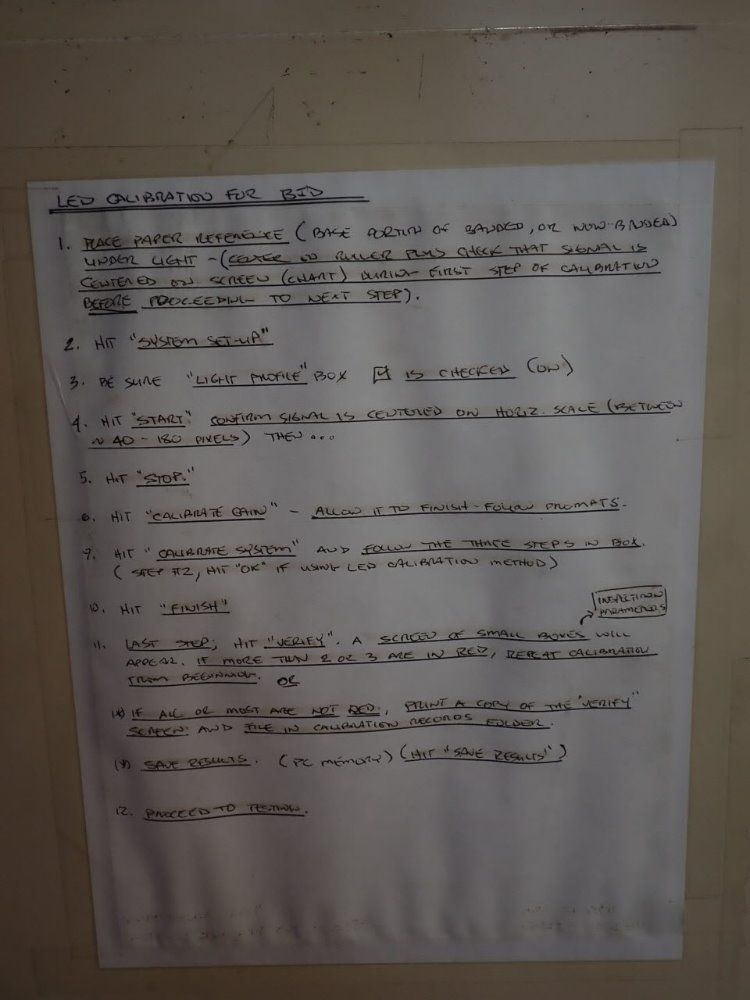 LED CALIBRATION FOR BID
1. PLACE PAPER REFERENCE (BASE PORTION OF BANDED, OR NON-BANDED)
UNDER LIGHT - (CENTER ON RULER PLUS CHECK THAT SIGNAL IS
CENTERED ON SCREEN (CHART) DURING FIRST STEP OF CALIBRATION
BEFORE PROCEEDING TO NEXT STEP).
2. HIT "SYSTEM SET-UP"
3. BE SURE "LIGHT PROFILE" BOX ☑ IS CHECKED (ON)
4. HIT "START." CONFIRM SIGNAL IS CENTERED ON HORIZ. SCALE (BETWEEN
~ 40 - 180 PIXELS) THEN ...
5. HIT "STOP."
6. HIT "CALIBRATE GAIN" - ALLOW IT TO FINISH - FOLLOW PROMPTS.
9. HIT "CALIBRATE SYSTEM" AND FOLLOW THE THREE STEPS IN BOX.
(STEP #2, HIT "OK" IF USING LED CALIBRATION METHOD)
10. HIT "FINISH"
INSPECTION
PARAMETERS
11. LAST STEP; HIT "VERIFY". A SCREEN OF SMALL BOXES WILL
APPEAR. IF MORE THAN 2 OR 3 ARE IN RED, REPEAT CALIBRATION
FROM BEGINNING. OR
IF ALL OR MOST ARE NOT RED, PRINT A COPY OF THE "VERIFY"
SCREEN AND FILE IN CALIBRATION RECORDS FOLDER.
SAVE RESULTS. (PC MEMORY) (HIT "SAVE RESULTS")
12. PROCEED TO TESTING.